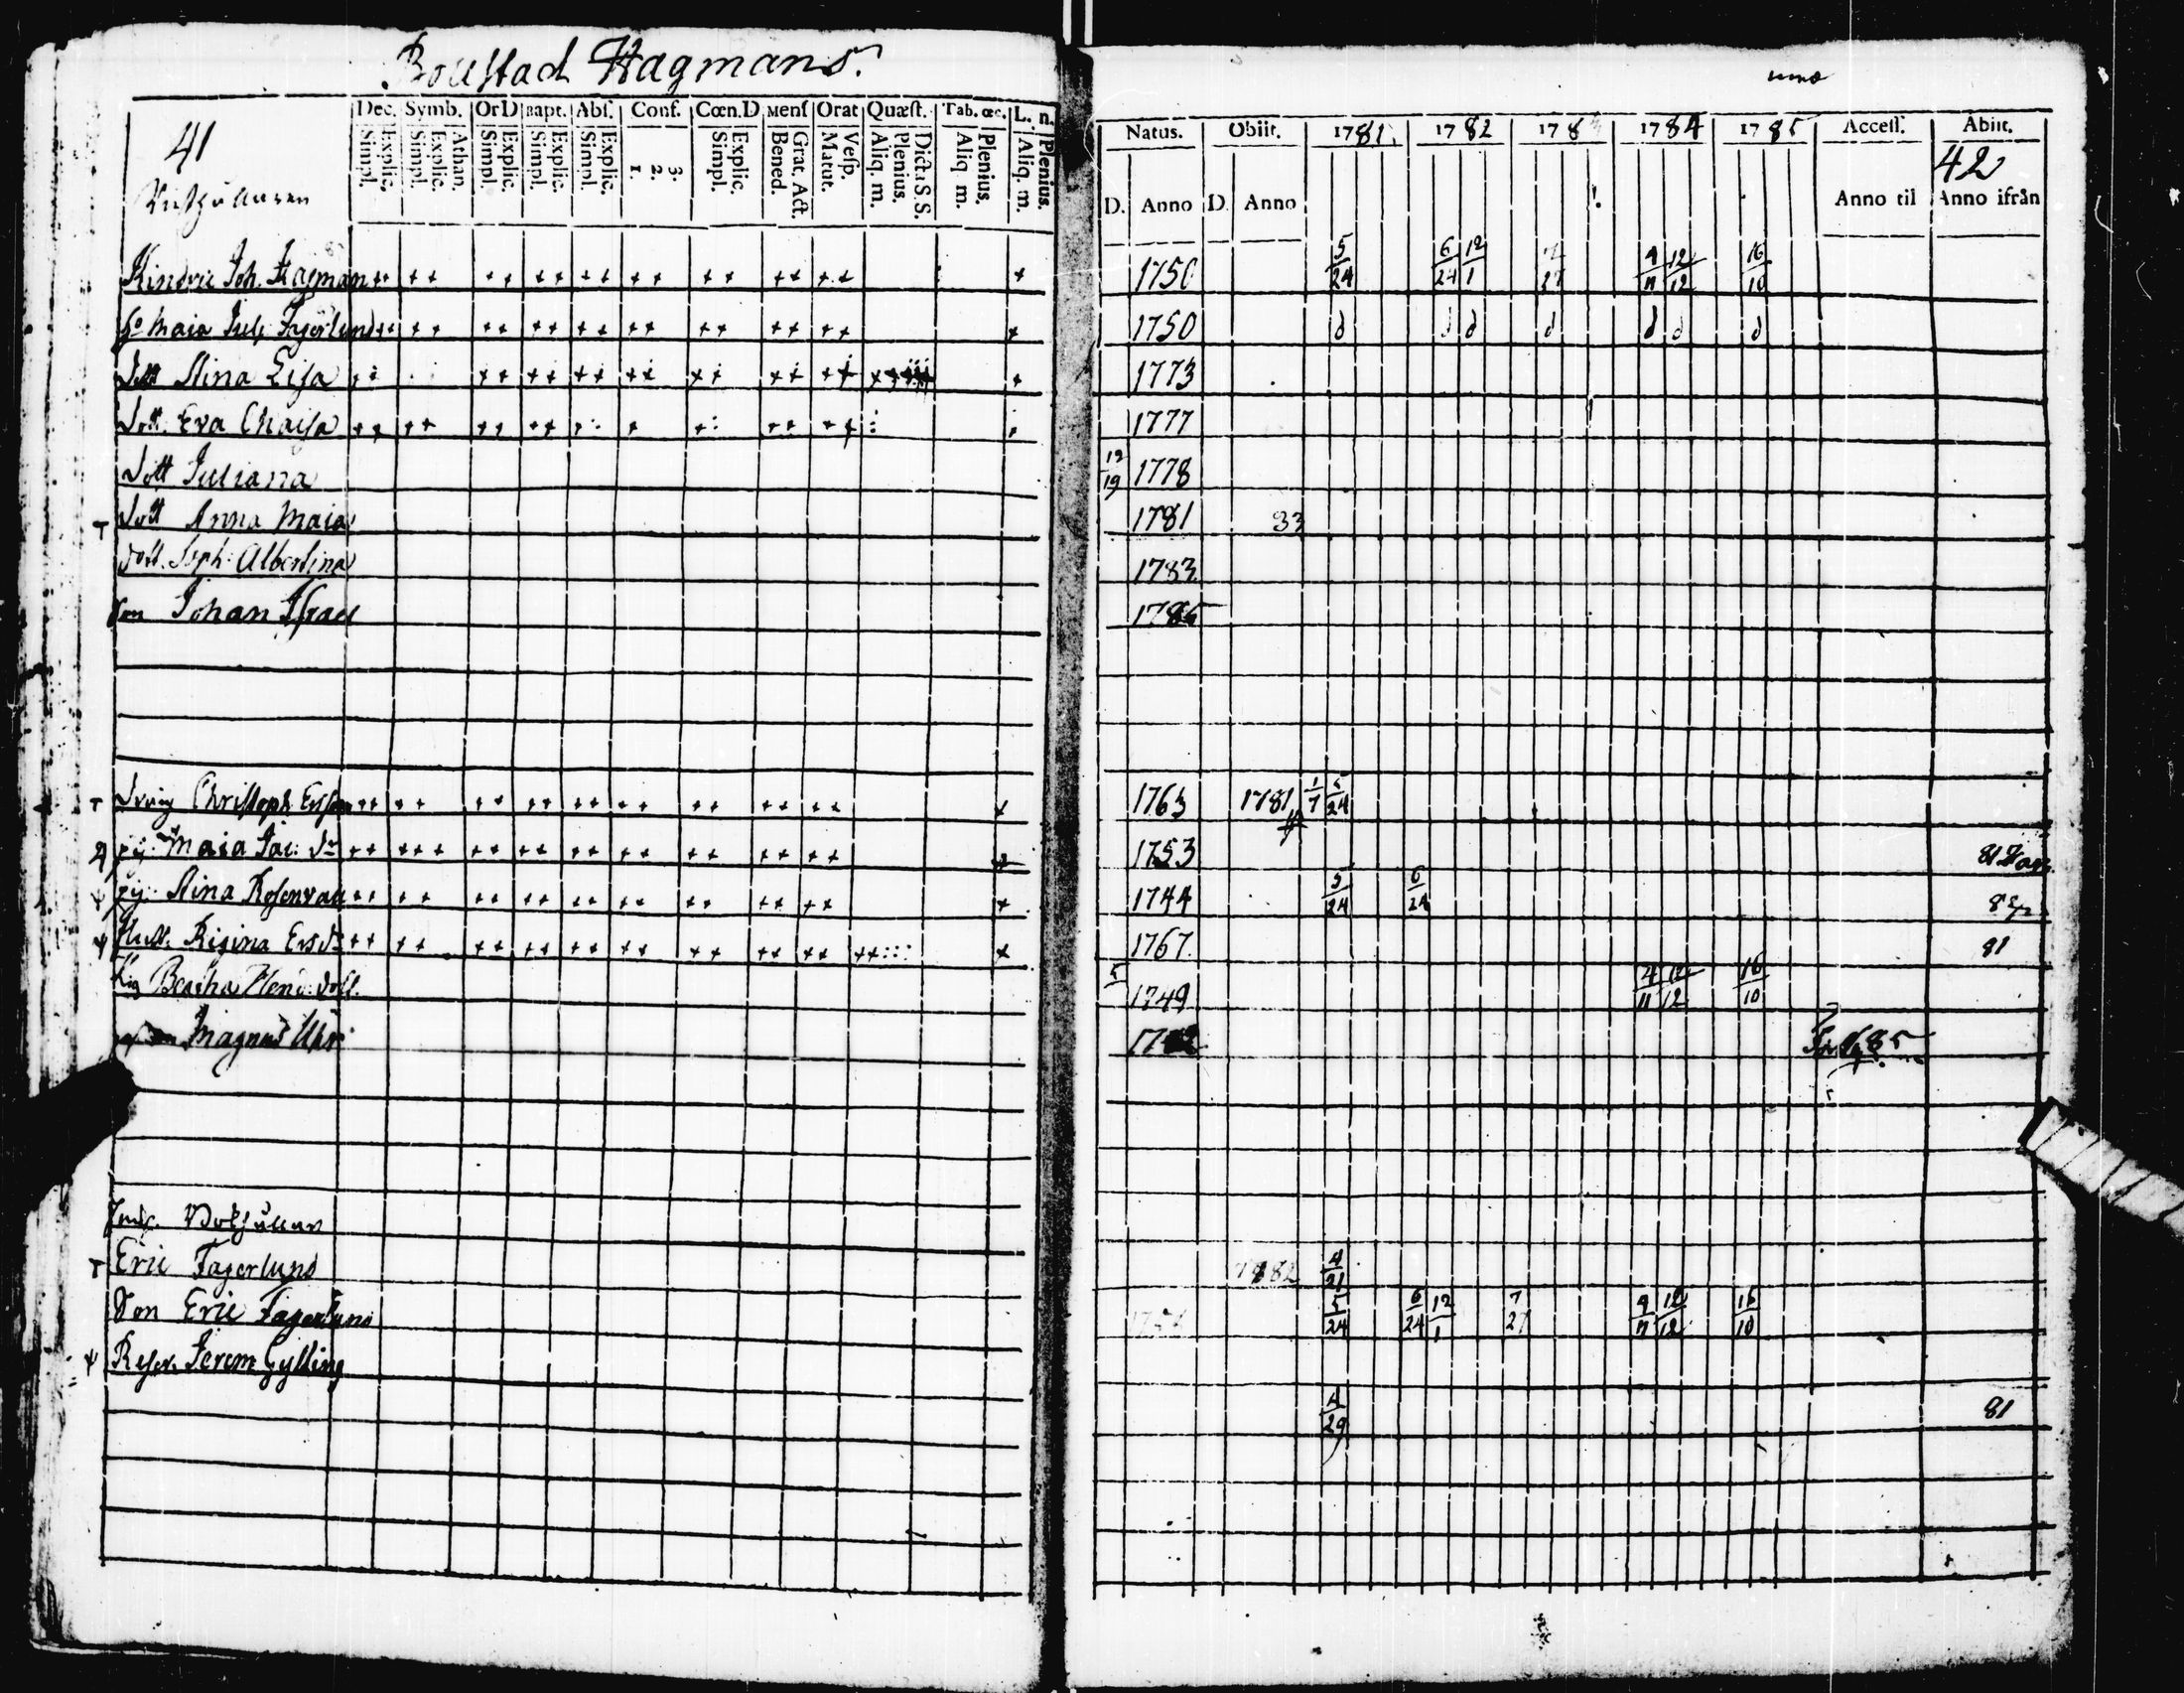 Boustad Hagmans.
41
Dec. Symb. Or D Bapt. Abs. Conf. Cœn. D Mens Orat Quæst. Tab. œc. L. n.
Simpl. Explic. Simpl. Explic. Athan. Simpl. Explic. Simpl. Explic. Simpl. Explic. 1. 2. 3. Simpl. Explic. Bened. Grat. Act. Matut. Vesp. Aliq. m. Plenius. Dicta S. S. Aliq. m. Plenius. Aliq. m. Plenius.
Natus. Obiit. 1781. 1782 178 1784 1785 Access. Abiit.
42
D. Anno D. Anno Anno til Anno ifrån
Joh. Hagman ++ ++ ++ ++ ++ ++ ++ ++ ++ + 1750 5/24 6/24 12/1 7/27 4/11 12/12 16/10
Maia Jul: Fagerlund ++ ++ ++ ++ ++ ++ ++ ++ ++ + 1750 d d d d d d d
Dott Stina Lisa 1773
Dott. Eva Chaisa 1777
Dott Juliana 12/19 1778
T Dott Anna Maia 1781 83
Dott. Soph: Albertina 1783
Son Johan Israel 1785
T Dräng Christoph Ersson ++ ++ ++ ++ ++ ++ ++ ++ ++ + 1763 1781 1/7 5/24
pig: Maia Jac: Dr ++ +++ ++ ++ ++ ++ ++ ++ ++ + 1753 81
pig: Stina Rosenvall ++ ++ ++ ++ ++ ++ ++ ++ ++ + 1744 5/24 6/24
Regina Ersdr ++ ++ ++ ++ ++ ++ ++ ++ ++ ++::: + 1767. 81
Pig Beatha Hend: dott. 1749 4/11 12/12 16/10
Magnus 85
T Eric Fagerlund 1782 4/21
Son Eric Fagerlund 5/24 6/24 12/1 7/27 4/11 12/12 16/10
Jerem Gylling
4/29 81